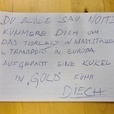 DU BLÖDE SAU NOTIS
KÜMMERE DICH UM
DAS TIERLEID IN MASTSTÄLLE
& TRANSPORT IN EUROPA
AUFGEPASST EINE KUGEL
IN, GOLD FÜR
DIECH